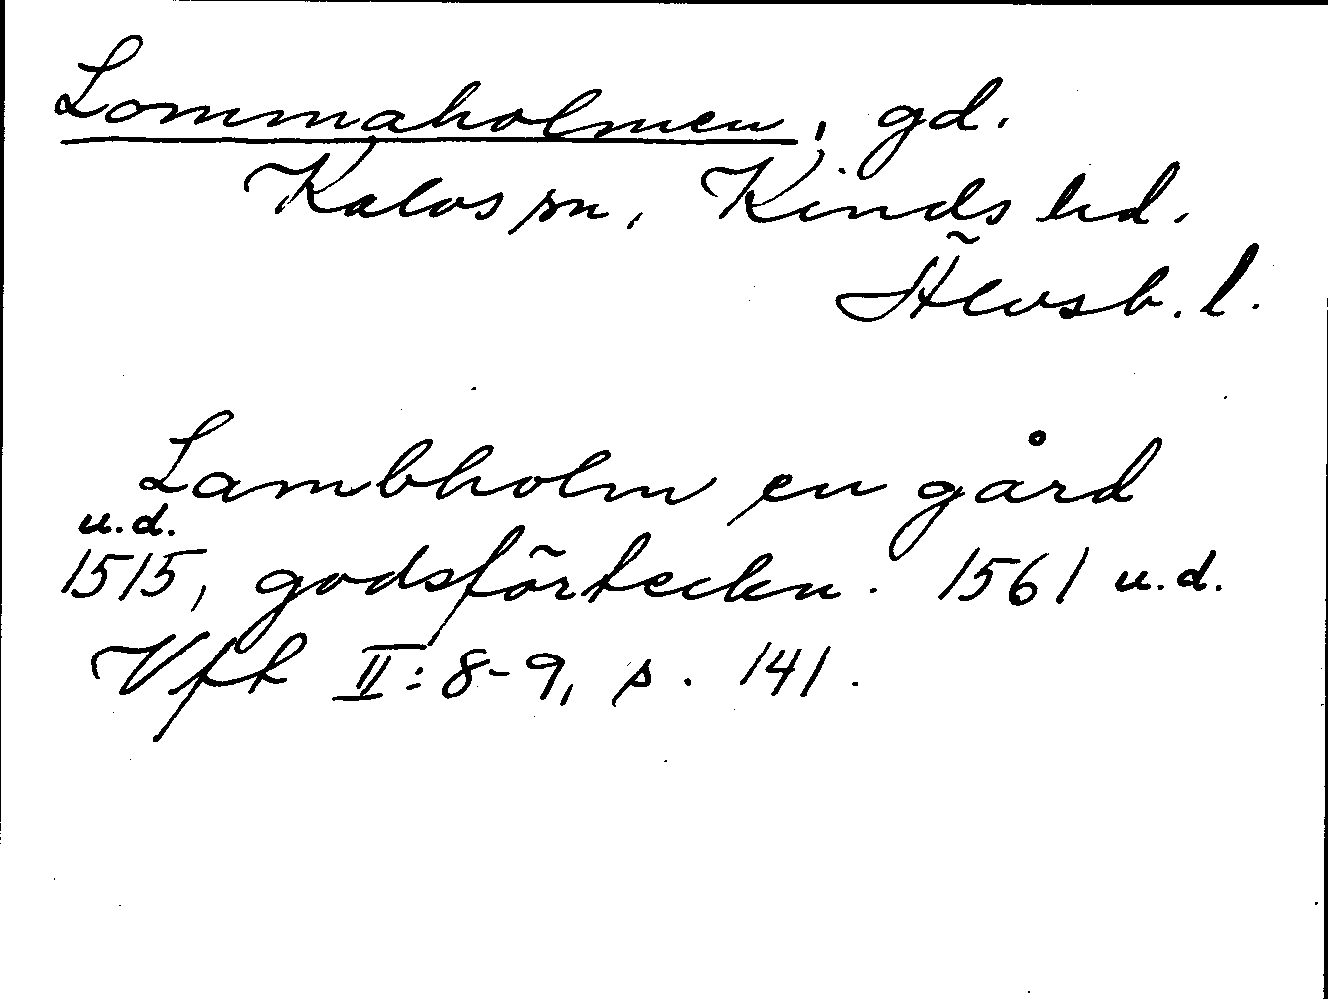 Lommaholmen, gd.
Kalvs sn, Kinds hd.
Älvsb. l.
Lambholm en gård
u.d.
1515, godsförteckn. 1561 u.d.
Vfh II:8-9, s. 141.